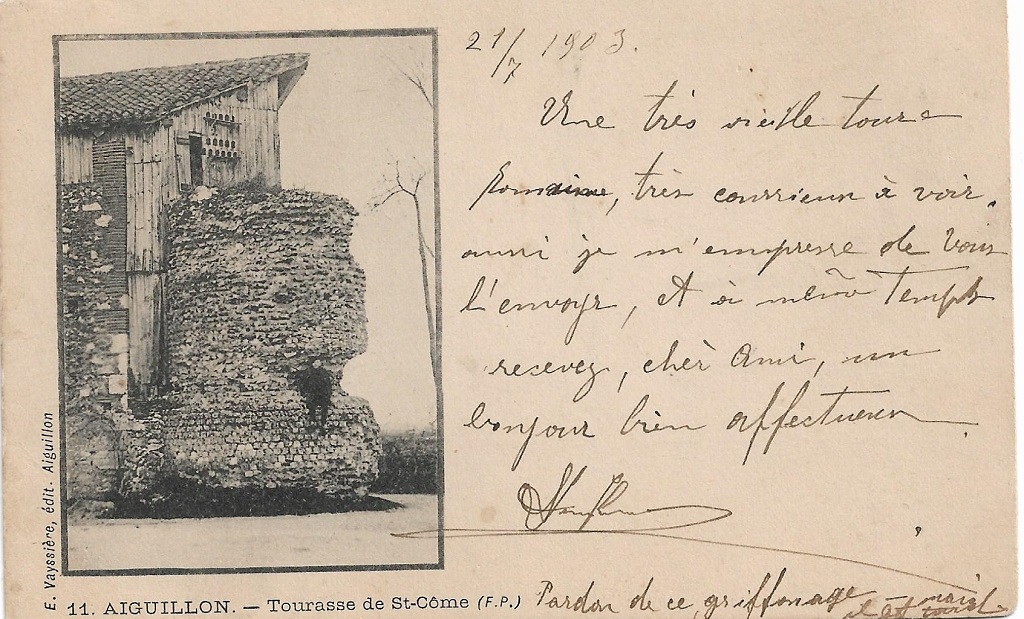 21/7 1903.
Une très vieille toure
Romaine, très courrieux à voir,
aussi je m'empresse de Vous
l'envoyr, et à même Temps
recevez, cher Ami, un
bonjour bien affectueux.
Pardon de ce griffonage
mais
il est tard.
E. Vayssière, édit. Aiguillon
11. AIGUILLON. — Tourasse de St-Côme (F.P.)